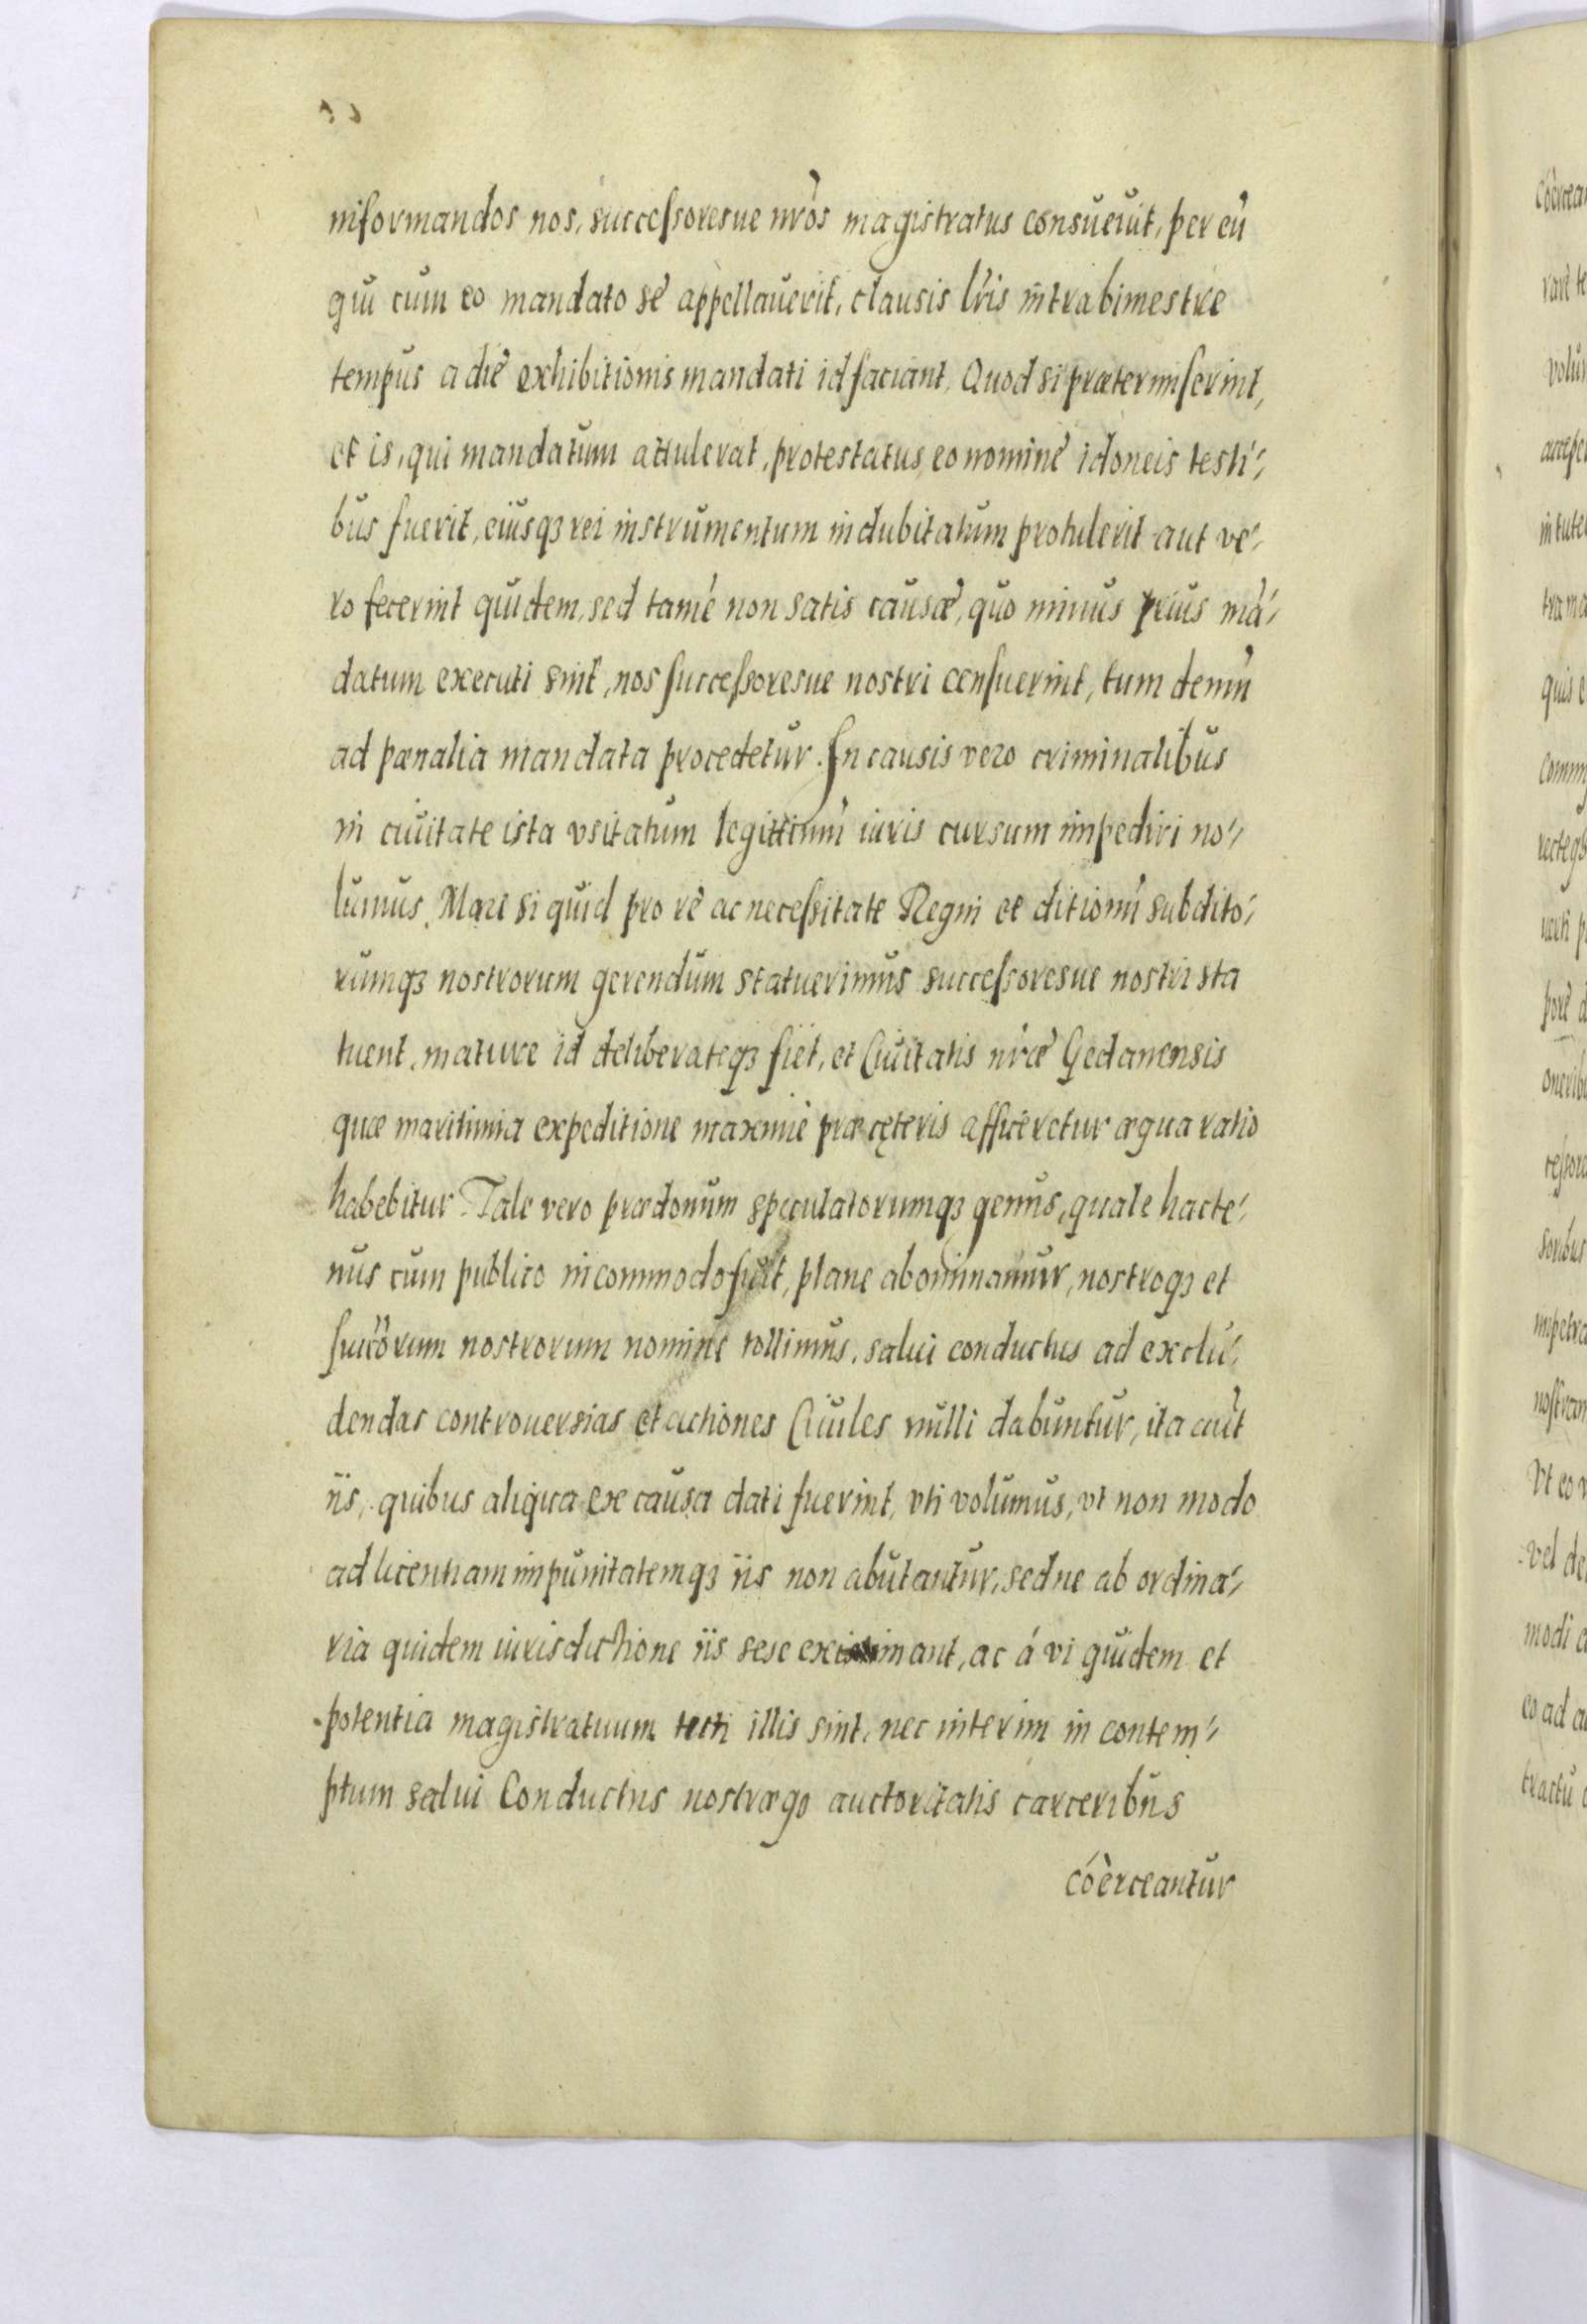 informandos nos, successoresue nr̃os magistratus consueuit, per eũ
qui cum eo mandato sẽ appellauerit, clausis lr̃is intra bimestre
tempus a diẽ exhibitionis mandati id faciant, Quod si prætermiserint,
et is, qui mandatum attulerat, protestatus, eo nominẽ idoneis testi-
bus fuerit, eiusqꝫ rei instrumentum indubitatum protulerit aut ve-
ro fecerint quidem, sed tamẽ non satis causæ, quo minus prius mã-
datum executi sint, nos successoresue nostri censuerint, tum demũ
ad pænalia mandata procedetur. In causis vero criminalibus
in ciuitate ista vsitatum legittimũ iuris cursum impediri no-
lumus, Mari si quid pro rẽ ac necessitate Regni et ditionũ subdito-
rumqꝫ nostrorum gerendum statuerimus successoresue nostri sta
tuent, mature id deliberateqꝫ fiet, et Ciuitatis nr̃æ Gedanensis
quæ maritima expeditione maximè præ cęteris afficeretur æqua ratio
habebitur. Tale vero prædonum speculatorumqꝫ genus, quale hacte-
nus cum publico incommodo fuit, plane abominamur, nostroqꝫ et
succ̃orum nostrorum nomine tollimus. salui conductus ad exclu-
dendas controuersias et actiones Ciuiles nulli dabuntur, ita aũt
iis, quibus aliqua ex causa dati fuerint, vti volumus, vt non modo
ad licentiam impunitatemqꝫ iis non abutantur, sed ne ab ordina-
ria quidem iurisdictione iis sese eximant, ac á vi quidem et
potentia magistratuum tecti illis sint, nec interim in contem-
ptum salui Conductus nostræqꝫ auctoritatis carceribus
cóèrceantur